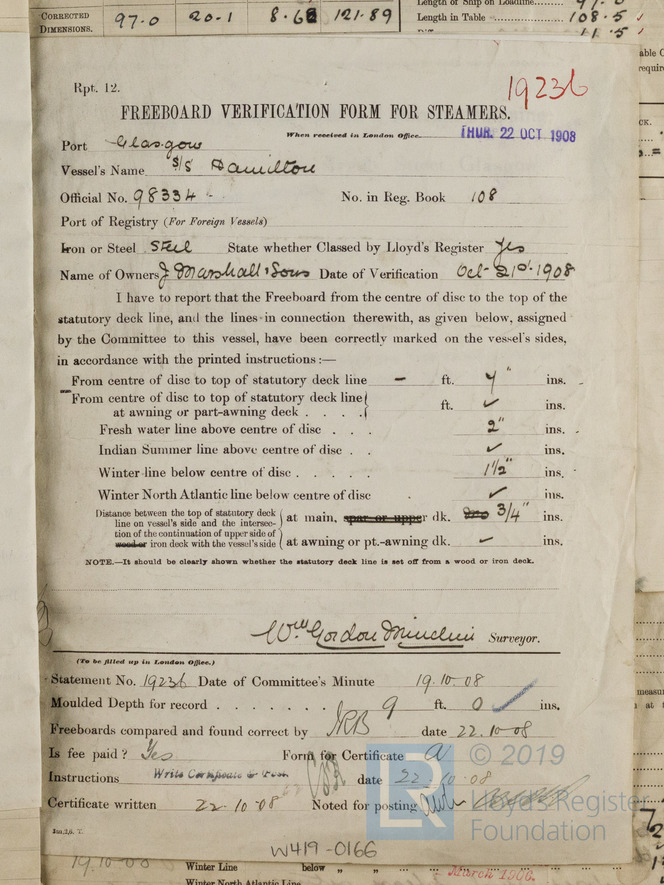 CORRECTED DIMENSIONS. 97.0 20.1 8.6 121.89
Length of Ship on Loadline
Length in Table 108.5
11.5
Rpt. 12.
19236
FREEBOARD VERIFICATION FORM FOR STEAMERS.
When received in London Office. THUR. 22 OCT 1908
Port Glasgow
Vessel's Name S/S Hamilton
Official No. 98334 No. in Reg. Book 108
Port of Registry (For Foreign Vessels)
Iron or Steel Steel State whether Classed by Lloyd's Register Yes
Name of Owners J Marshall & Sons Date of Verification Oct 21st 1908
I have to report that the Freeboard from the centre of disc to the top of the
statutory deck line, and the lines in connection therewith, as given below, assigned
by the Committee to this vessel, have been correctly marked on the vessel's sides,
in accordance with the printed instructions :—
From centre of disc to top of statutory deck line – ft. " ins.
From centre of disc to top of statutory deck line
at awning or part-awning deck . . . . ft. ✓ ins.
Fresh water line above centre of disc . . . 2" ins.
Indian Summer line above centre of disc . . ✓ ins.
Winter line below centre of disc . . . . . 1½" ins.
Winter North Atlantic line below centre of disc . ✓ ins.
Distance between the top of statutory deck
line on vessel's side and the intersec-
tion of the continuation of upper side of
wood or iron deck with the vessel's side
at main, spar or upper dk. 3/4" ins.
at awning or pt.-awning dk. – ins.
NOTE.—It should be clearly shown whether the statutory deck line is set off from a wood or iron deck.
Wm Gordon Surveyor.
(To be filled up in London Office.)
Statement No. 19236 Date of Committee's Minute 19.10.08
Moulded Depth for record . . . . . . . 9 ft. 0 ins.
Freeboards compared and found correct by date 22.10.08
Is fee paid? Yes Form for Certificate a
Instructions Write Certificate & Post date 22.10.08
Certificate written 22.10.08 Noted for posting
Jan., 2,6. T.
W419-0166
© 2019
LR
Lloyd's Register
Foundation
19.10.08 Winter Line below " " March 1906.
Winter North Atlantic Line